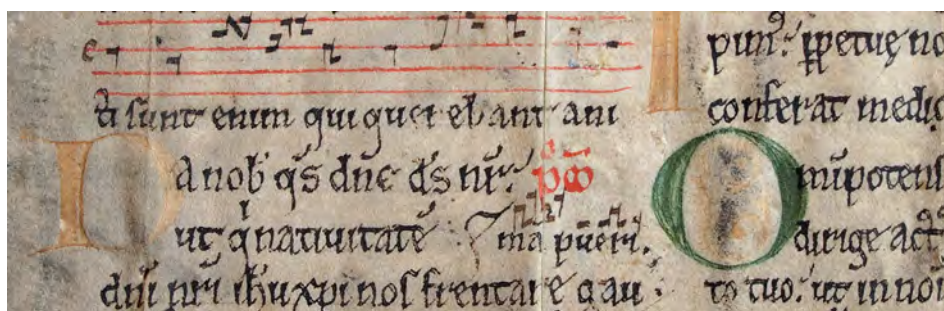 ti sunt enim qui querebant ani
Da nob q̄s dn̄e d̄s nr̄:
ut q nativitatē ma pueri.
dn̄i nr̄i ih̄u xp̄i nos frentare gau
ꝑpetuę no
conferat medi
Om̄ipotens
dirige act
to tuo. ut in no